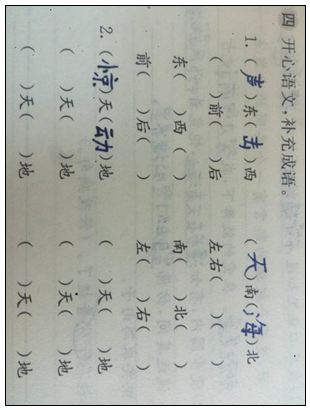 四 开心语文，补充成语。
1.（声）东（击）西 （天）南（海）北
（ ）前（ ）后 左右（ ）（ ）
东（ ）西（ ） 南（ ）北（ ）
前（ ）后（ ） 左（ ）右（ ）
2.（惊）天（动）地 （ ）天（ ）地
（ ）天（ ）地 （ ）天（ ）地
（ ）天（ ）地 （ ）天（ ）地